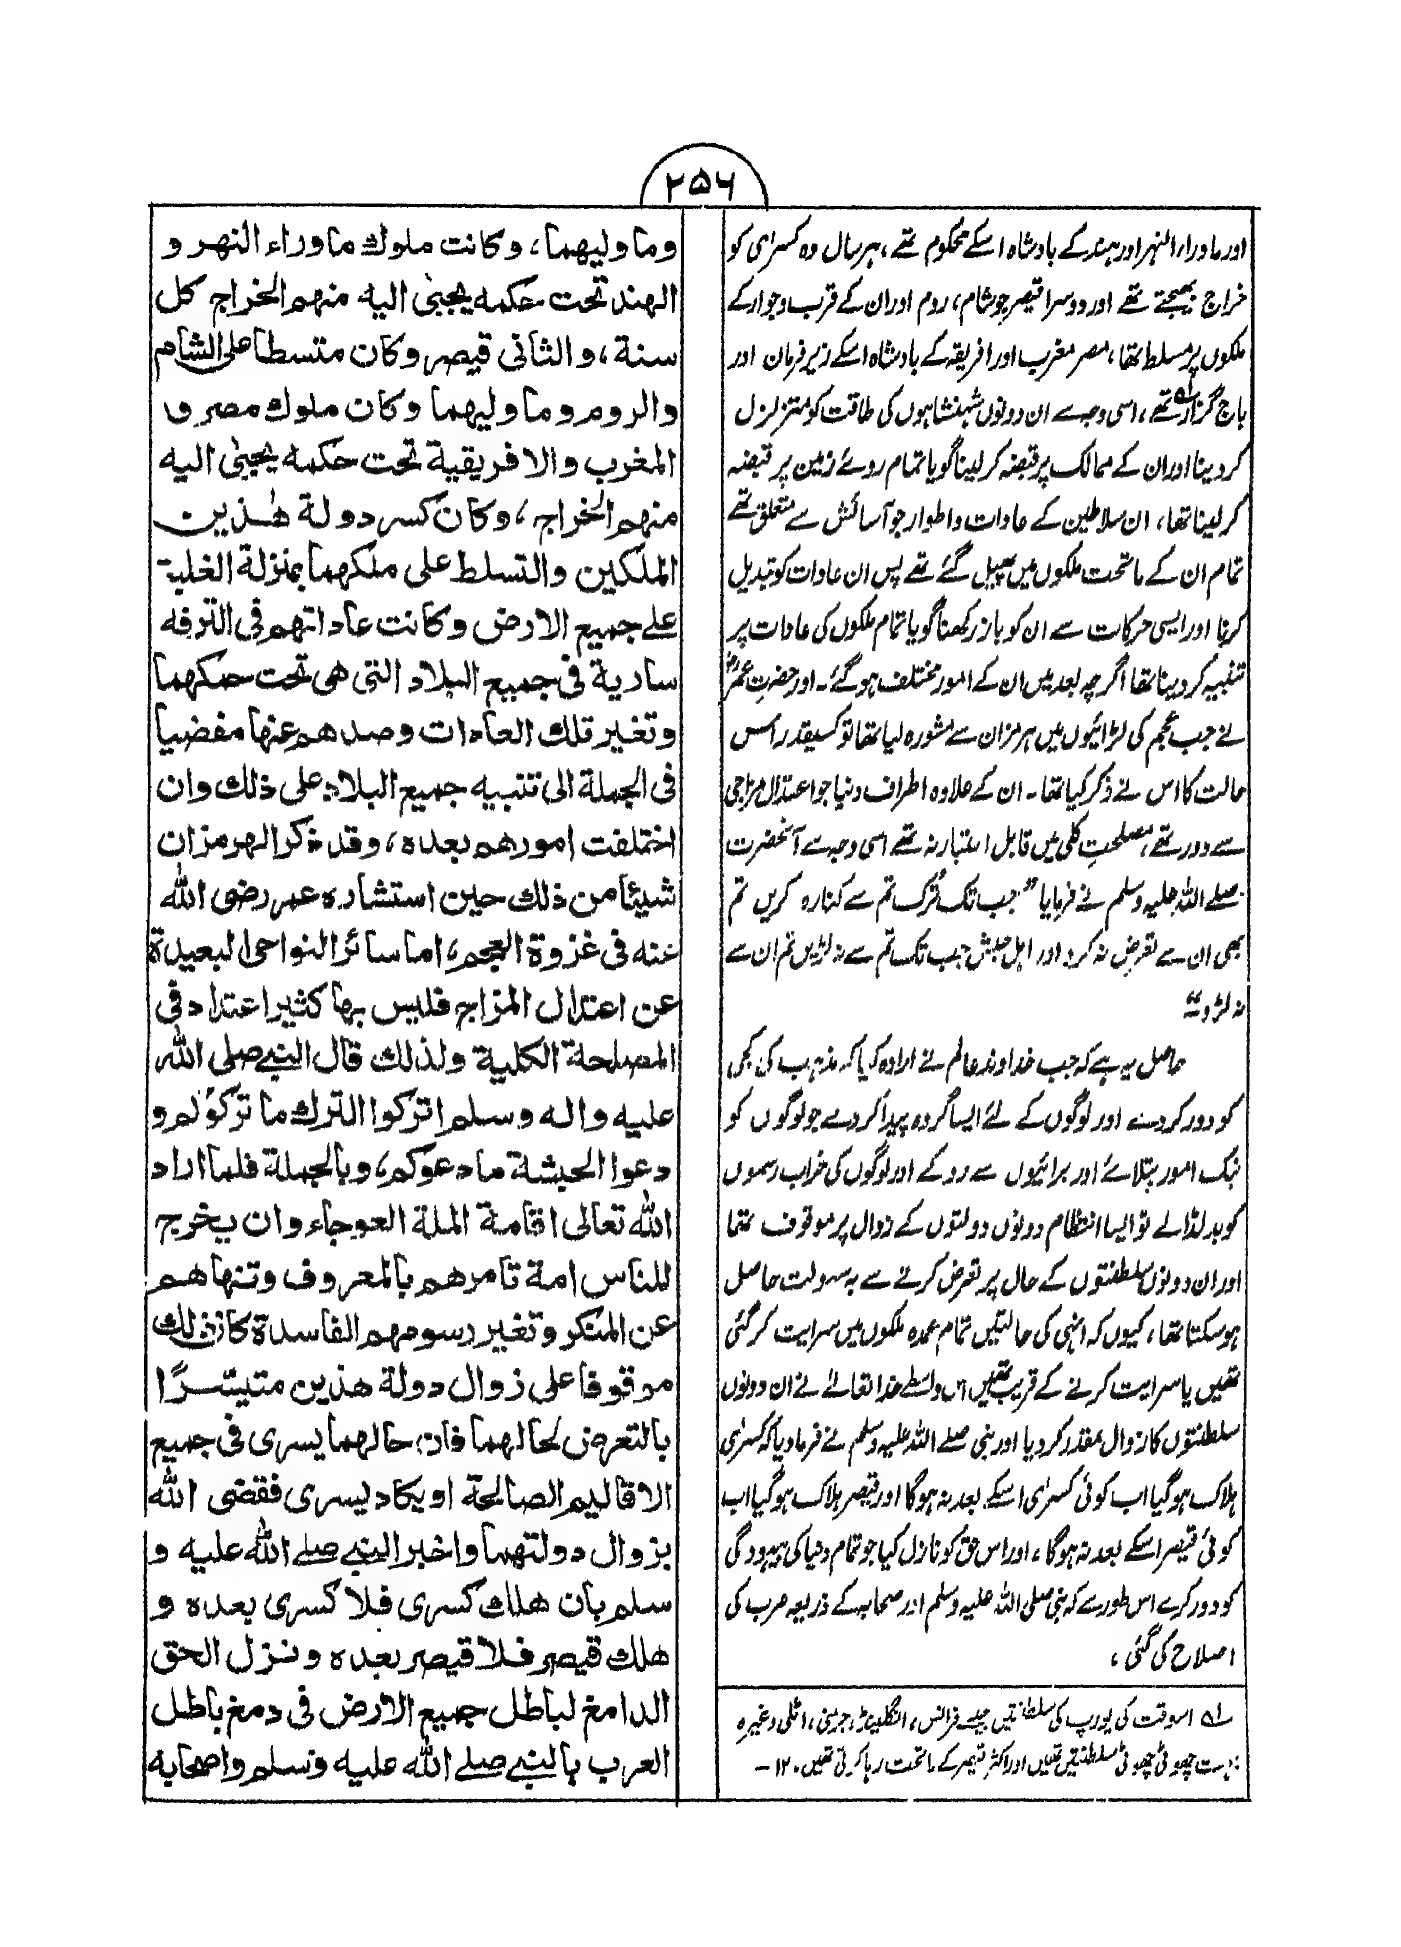 ۲۵۶
اور ماوراء النہر اور ہند کے بادشاہ اسکے محکوم تھے، ہر سال وہ کسریٰ کو
خراج بھیجتے تھے اور دوسرا قیصر جو شام، روم اور ان کے قرب وجوار کے
ملکوں پر مسلط تھا، مصر مغرب اور افریقہ کے بادشاہ اسکے زیر فرمان اور
باج گزار تھے، اسی وجہ سے ان دونوں شہنشاہوں کی طاقت کو متزلزل
کر دینا اور ان کے ممالک پر قبضہ کر لینا گویا تمام روئے زمین پر قبضہ
کر لینا تھا، ان سلاطین کے عادات واطوار جو آسائش سے متعلق تھے
تمام ان کے ماتحت ملکوں میں پھیل گئے تھے پس ان عادات کو تبدیل
کرنا اور ایسی حرکات سے ان کو باز رکھنا گویا تمام ملکوں کی عادات پر
تنبیہ کر دینا تھا اگرچہ بعد میں ان کے امور مختلف ہو گئے۔ اور حضرت عمرؓ
نے جب عجم کی لڑائیوں میں ہرمزان سے مشورہ لیا تھا تو کسیقدر اس
حالت کا اس نے ذکر کیا تھا۔ ان کے علاوہ اطراف دنیا جو اعتدال مزاجی
سے دور تھے، مصلحت کلی میں قابل اعتبار نہ تھے اسی وجہ سے آنحضرت
صلے اللہ علیہ وسلم نے فرمایا "جب تک تُرک تم سے کنارہ کریں تم
بھی ان سے تعرض نہ کرو اور اہل حبش جب تک تم سے نہ لڑیں تم ان سے
نہ لڑو"
حاصل یہ ہے کہ جب خداوند عالم نے ارادہ کیا کہ مذہب کی کجی
کو دور کر دے اور لوگوں کے لئے ایسا گروہ پیدا کر دے جو لوگوں کو
نیک امور بتلائے اور برائیوں سے روکے اور لوگوں کی خراب رسموں
کو بدل ڈالے تو ایسا انتظام دونوں دولتوں کے زوال پر موقوف تھا
اور ان دونوں سلطنتوں کے حال پر تعرض کرنے سے بہ سہولت حاصل
ہو سکتا تھا، کیوں کہ انہی کی حالتیں تمام عمدہ ملکوں میں سرایت کر گئی
تھیں یا سرایت کرنے کے قریب تھیں اس واسطے خدا تعالےٰ نے ان دونوں
سلطنتوں کا زوال مقدر کر دیا اور نبی صلے اللہ علیہ وسلم نے فرما دیا کہ کسریٰ
ہلاک ہو گیا اب کوئی کسریٰ اسکے بعد نہ ہوگا اور قیصر ہلاک ہو گیا اب
کوئی قیصر اسکے بعد نہ ہوگا، اور اس حق کو نازل کیا جو تمام دنیا کی بیہودگی
کو دور کرے اس طور سے کہ نبی صلی اللہ علیہ وسلم اور صحابہ کے ذریعہ عرب کی
اصلاح کی گئی،
لہ اسوقت کی یورپ کی سلطنتیں جیسے فرانس، انگلینڈ، جرمنی، اٹلی وغیرہ
بہت چھوٹی چھوٹی سلطنتیں تھیں اور اکثر قیصر کے ماتحت رہا کرتی تھیں۔ ۱۲ –
وما وليهما، وكانت ملوك ما وراء النهر و
الهند تحت حكمه يجبىٰ اليه منهم الخراج كل
سنة، والثانى قيصر وكان متسطا على الشام
والروم وما وليهما وكان ملوك مصر و
المغرب والافريقية تحت حكمه يجبىٰ اليه
منهم الخراج، وكان كسر دولة هٰذين
الملكين والتسلط على ملكهما بمنزلة الغلبة
علے جميع الارض وكانت عاداتهم فى الترفه
سارية فى جميع البلاد التى هى تحت حكمهما
وتغير تلك العادات وصدهم عنها مفضيا
فى الجملة الى تنبيه جميع البلاد على ذلك وان
اختلفت امورهم بعده، وقد ذكر الهرمزان
شيئا من ذلك حين استشاره عمر رضى الله
عنه فى غزوة العجم، اما سائر النواحى البعيدة
عن اعتدال المزاج فليس بها كثير اعتداد فى
المصلحة الكلية ولذلك قال النبے صلى الله
عليه واله وسلم اتركوا الترك ما تركوكم و
دعوا الحبشة ما دعوكم، وبالجملة فلما اراد
الله تعالى اقامة الملة العوجاء وان يخرج
للناس امة تامرهم بالمعروف وتنهاهم
عن المنكر وتغير رسومهم الفاسدة كان ذلك
موقوفا على زوال دولة هذين متيسّرًا
بالتعرض لحالهما فان حالهما يسرى فى جميع
الاقاليم الصالحة او يكاد يسرى فقضى الله
بزوال دولتهما واخبر النبے صلے الله عليه و
سلم بان هلك كسرى فلا كسرى بعده و
هلك قيصر فلا قيصر بعده ونزل الحق
الدامغ لباطل جميع الارض فى دمغ باطل
العرب بالنبے صلے الله عليه وسلم واصحابه